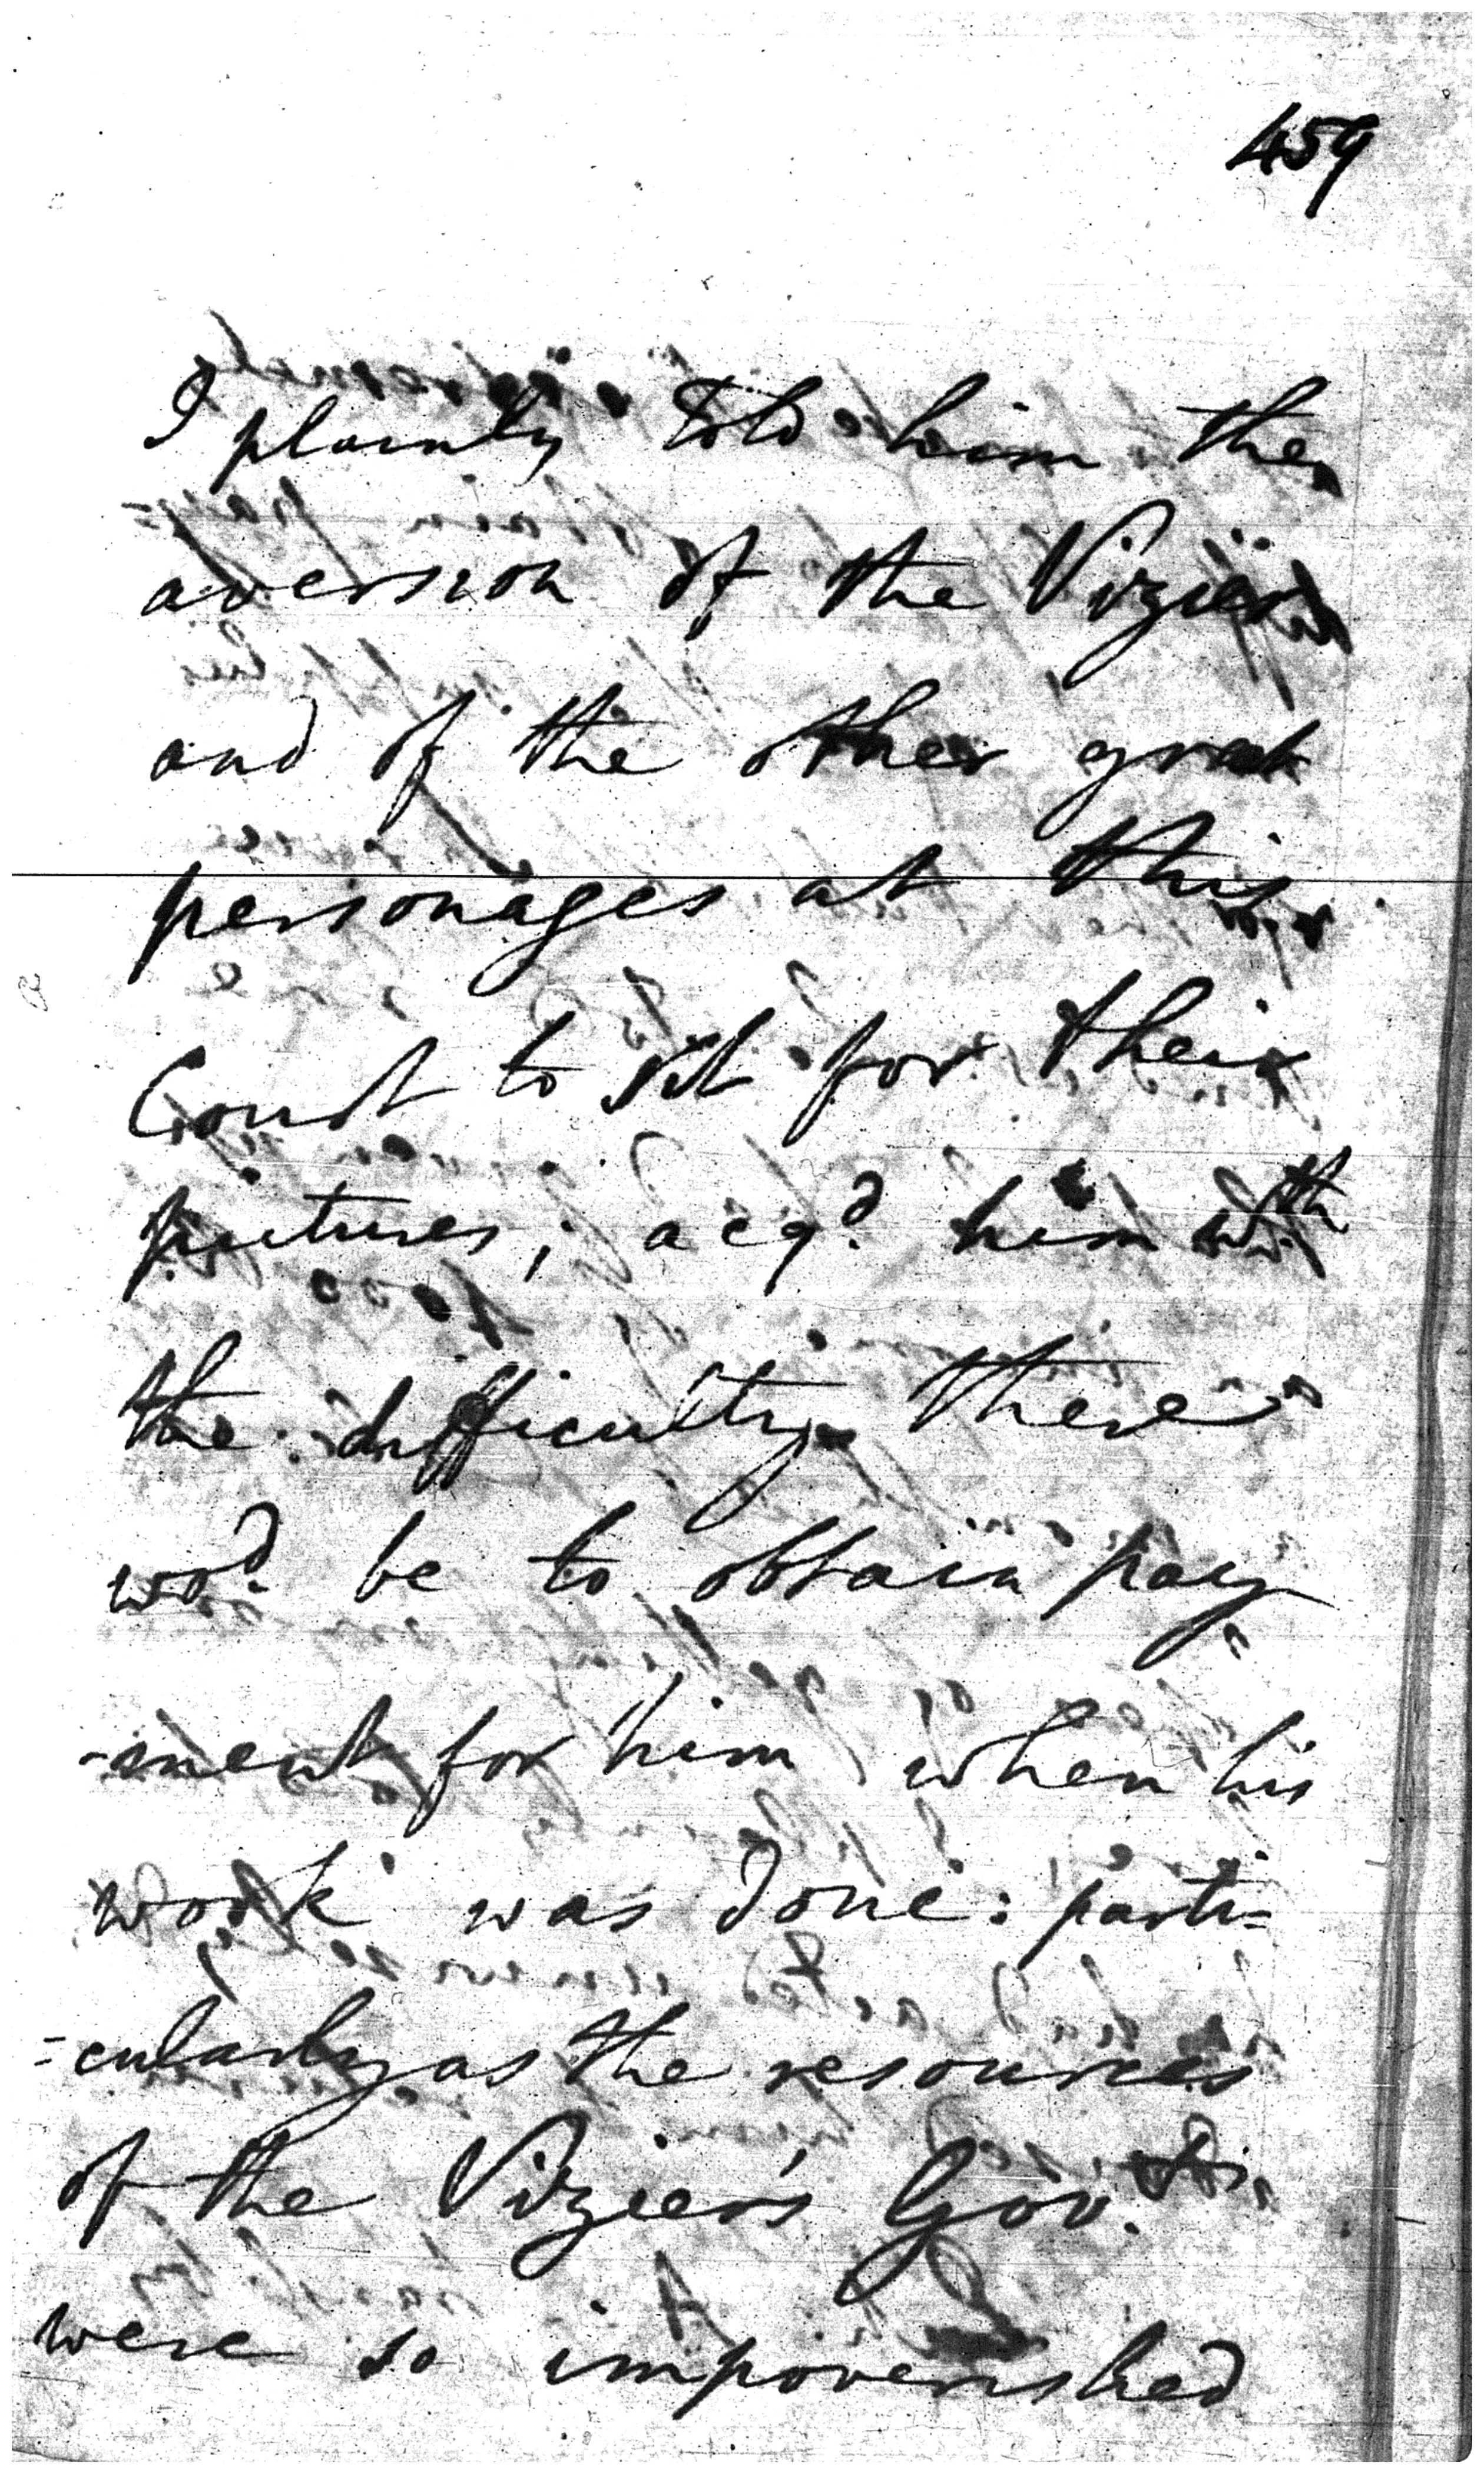 459
I plainly told him the
aversion of the Vizier
and of the other great
personages at this
Court to sit for their
pictures; acqd. him with
the difficulty there
wod. be to obtain pay
-ment for him when his
work was done: parti=
=cularly as the resources
of the Vizier's Govt.
were so impoverished